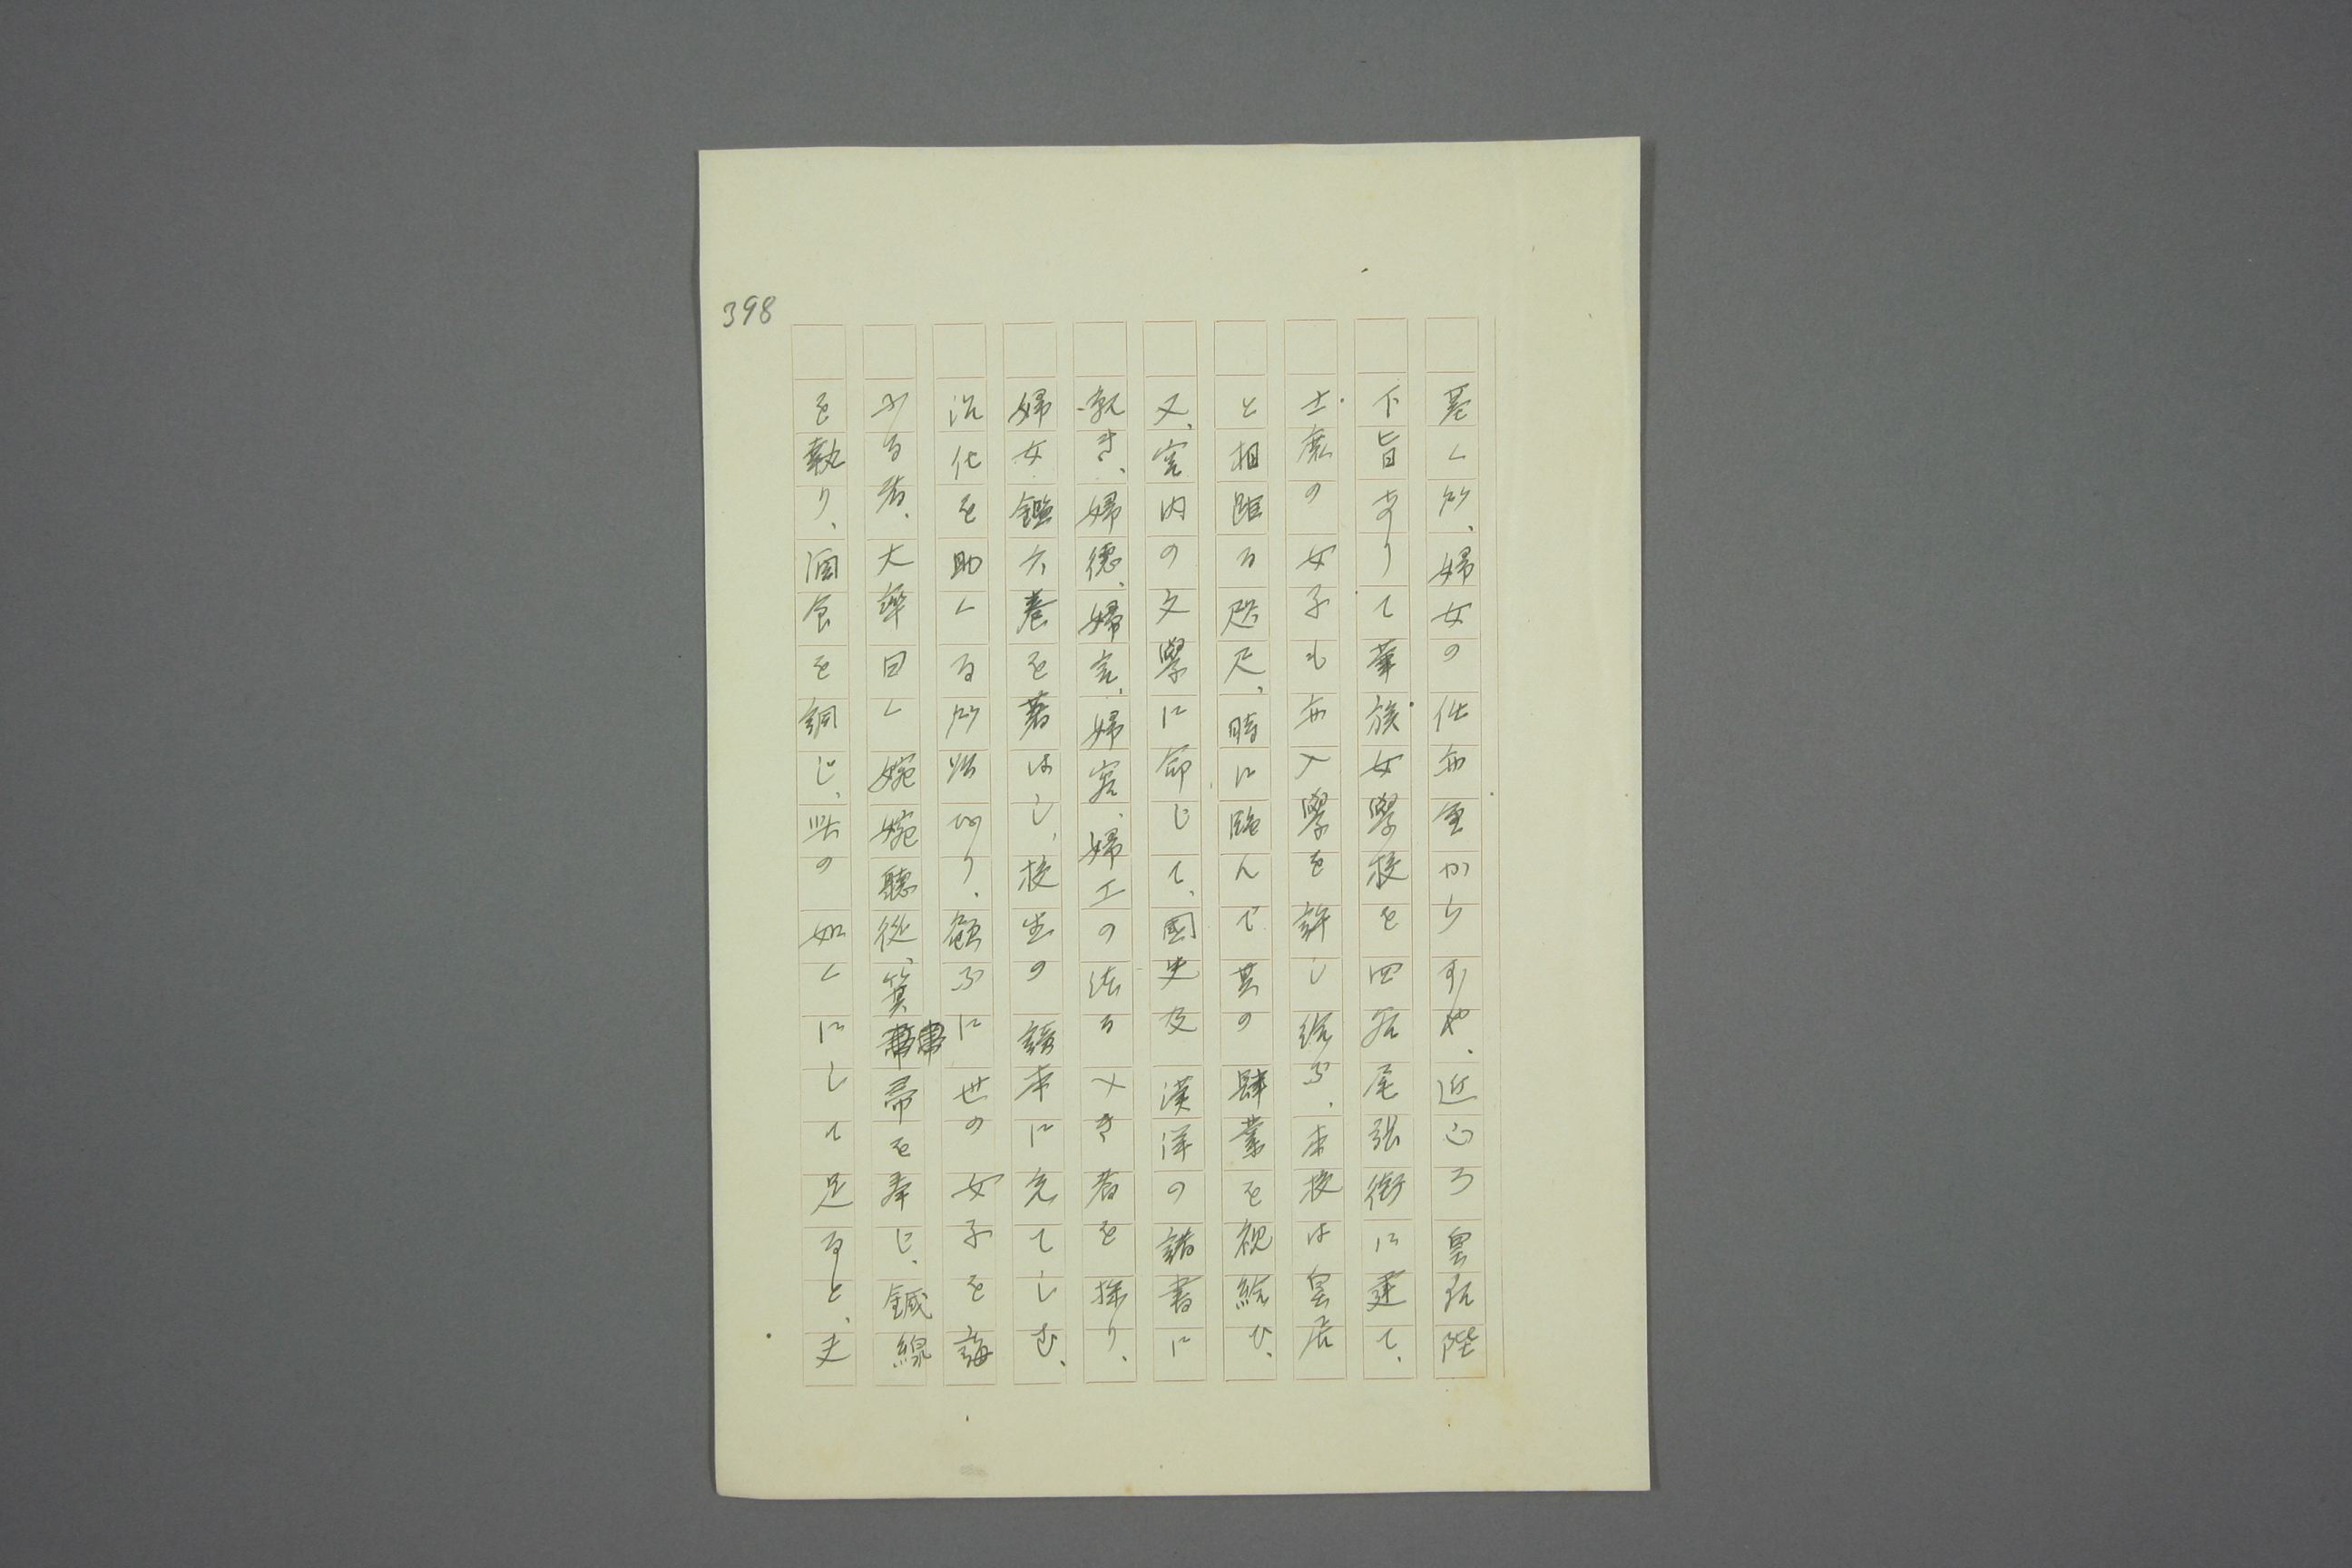 398
基く所、婦女の任亦重からずや、近ごろ皇后陛
下旨ありて華族女學校を四谷尾張街に建て、
士庶の女子も亦入學を許し給ふ、本校は皇居
と相距る咫尺、時に臨んで其の肄業を視給ひ、
又、宮内の文學に命じて、國史及漢洋の諸書に
就き、婦徳、婦言、婦容、婦工の法るべき者を採り、
婦女鑑六巻を著はし、校生の讀本に充てしむ、
治化を助くる所以なり、顧ふに世の女子を誨
ふる者、大率曰く婉娩聽從、箕帚を奉じ、鍼線
を執り、酒食を調じ、此の如くにして足ると、夫